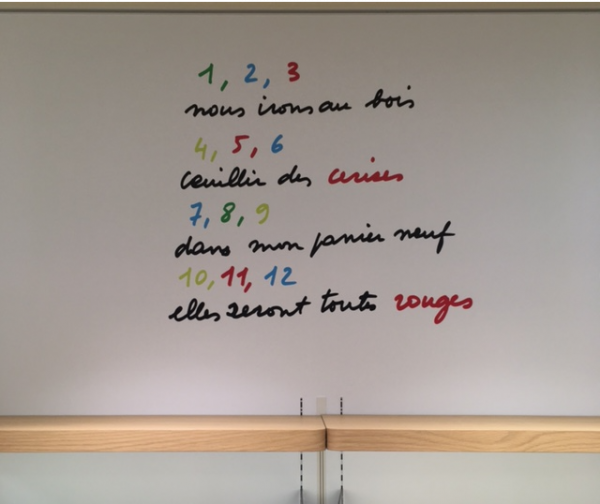 1, 2, 3
nous irons au bois
4, 5, 6
cueillir des cerises
7, 8, 9
dans mon panier neuf
10, 11, 12
elles seront toutes rouges